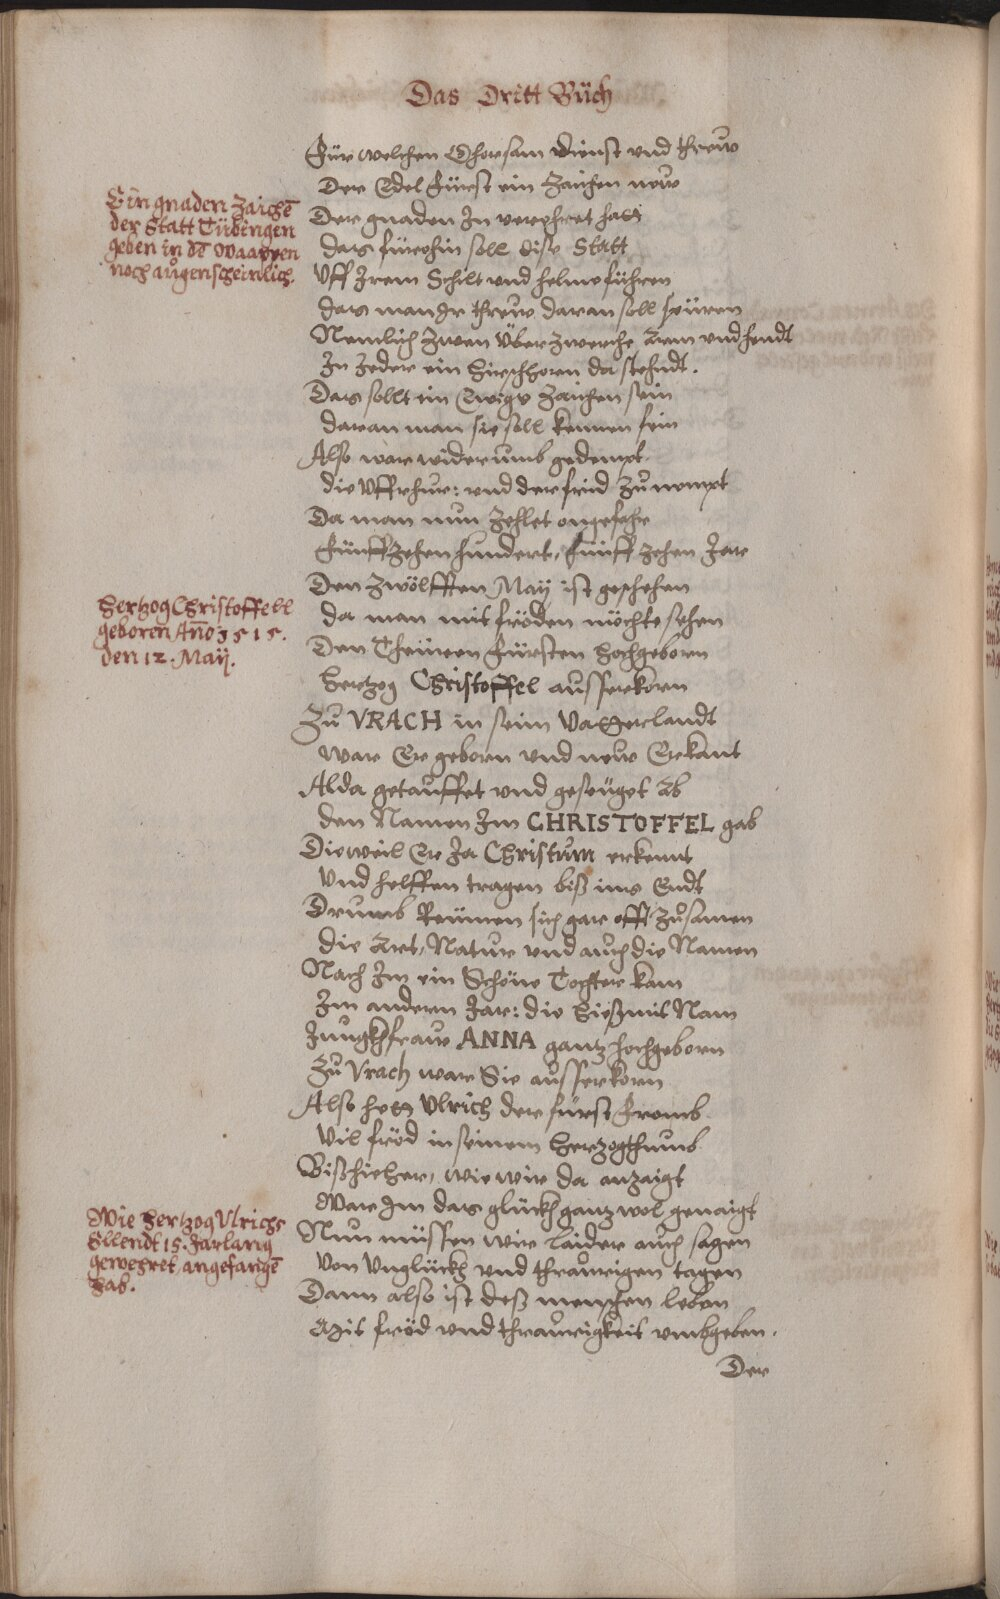 Das Dritt Büch
Für welchen Ghorsam dienst vnd threw
Der Edel Fürst ein Zaichen new
Ein gnaden Zaichē
der Statt Tübingen
geben in dē Waappen
noch augenscheinlich.
Der gnaden In verehret hatt
das fürohin soll dise Statt
Vff Irem Schilt vnd helme führen
das man Ir threw daran soll spüren
Nemlich Zwen Überzwerche Arm vnd hendt
In Jeder ein Hirschhorn da stehndt.
Das sollt ein Ewigs Zaichen sein
daran man sie soll kennen fein
Also war widerumb gedempt
die Vffrhur: vnd der frid Zu nempt
Da man nun Zehlet ongefehr
Fünffzehenhundert, fünffzehen Jar
Hertzog Christoffell
geboren Año 1515.
den 12. Maÿ.
Den Zwölfften Maÿ ist geschehen
da man mit fröden möchte sehen
Den Theüren Fürsten Hochgeborn
Hertzog Christoffel ausserkorn
Zu VRACH in seim Vatterlandt
war Er geborn vnd new Erkant
Alda getauffet vnd geseüget Ab
den Namen Im CHRISTOFFEL gab
Dieweil Er Ja Christum erkennt
Vnd helffen tragen biß ins Endt
Drumb Reümen sich gar offt Zusamen
die Art, Natur vnd auch die Namen
Nach Im ein Schöne Tochter kam
Im andern Jar: die hieß mit Nam
Jungkhfraw ANNA gantz hochgeborn
Zu Vrach war Sie ausserkorn
Also hett Vlrich der fürst Fromb
Vil fröd in seinem Hertzogthumb
Bißhieher, wie wir da anzaigt
War Im das glückh gantz wol genaigt
Wie Hertzog Vlrichs
Ellendt 15. Jarlang
gewehret, angefangē
hab.
Nun müssen wir laider auch sagen
Von Vnglückh vnd thraurigen tagen
Dann also ist deß menschen leben
Mit fröd vnd thraurigkeit vmbgeben.
Der